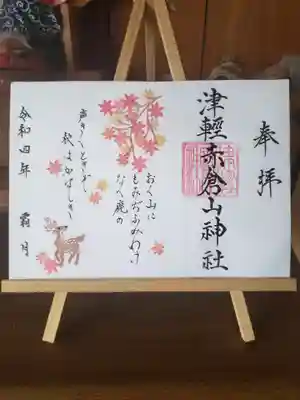 奉拝
津軽赤倉山神社
おく山に
もみぢふみわけ
なく鹿の
声きくときぞ
秋はかなしき
令和四年 霜月